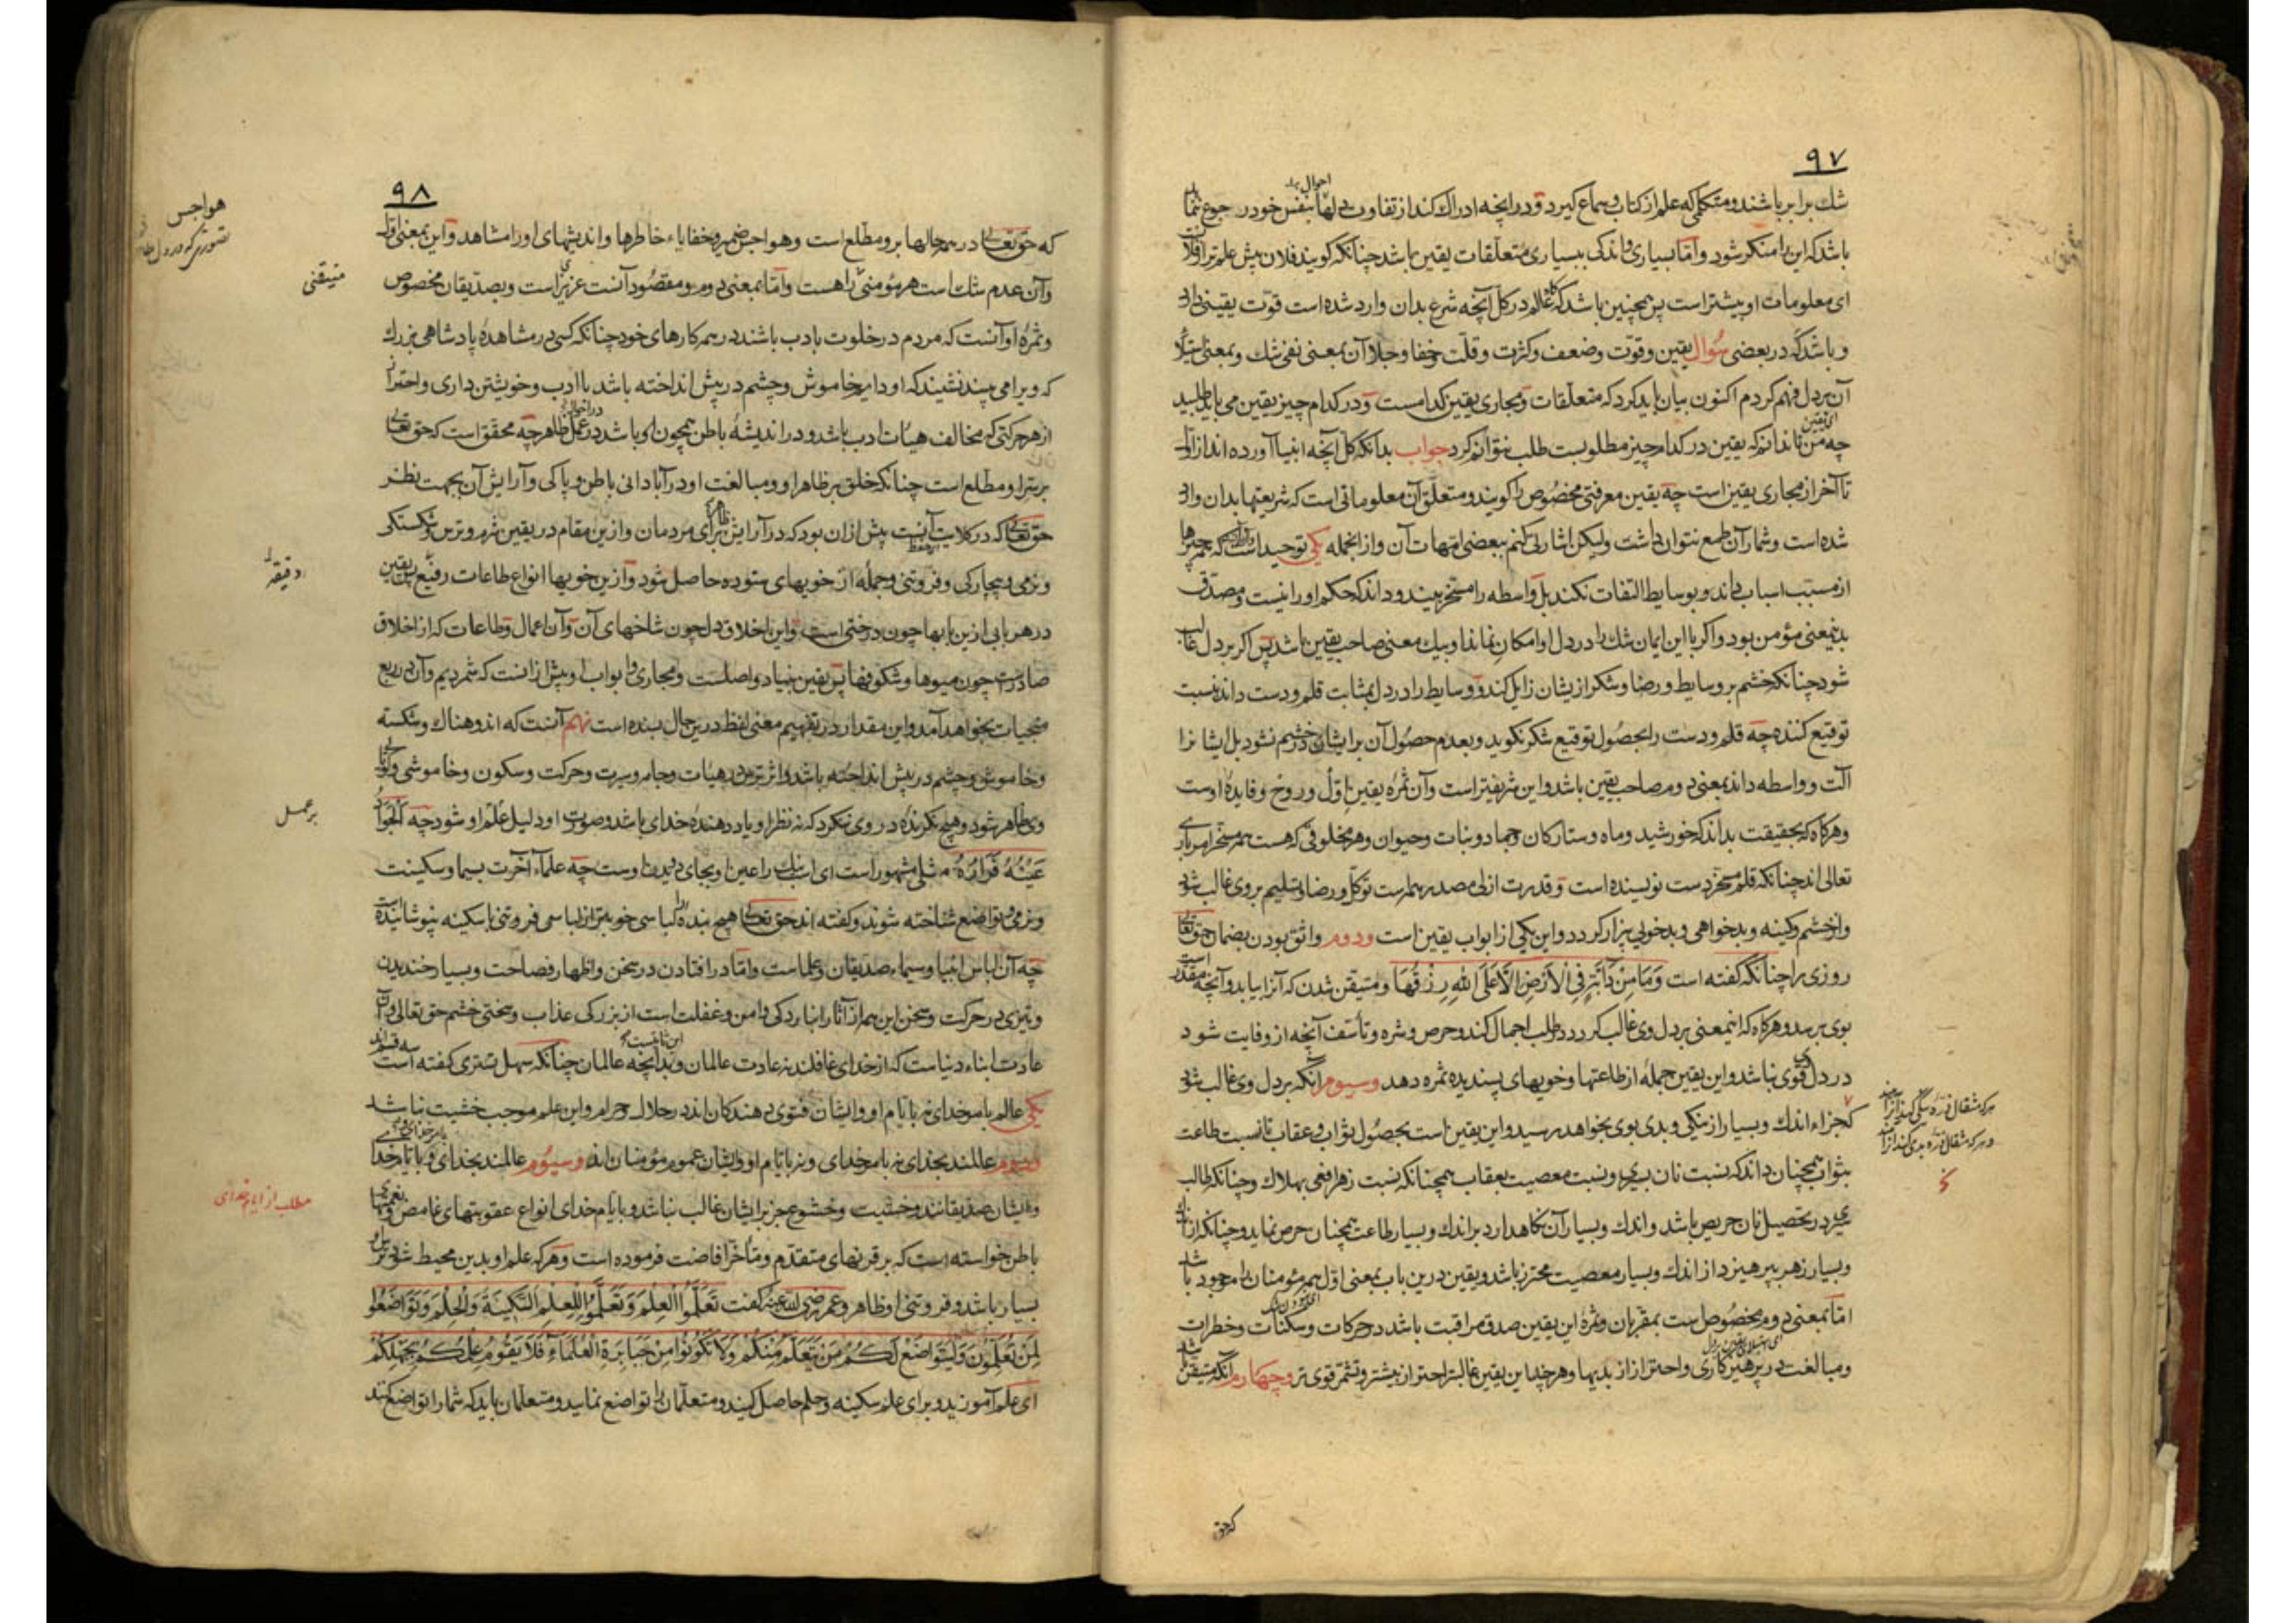 ٩٧
شك برابر باشند و متكلمى كه علم از كتاب و سماع كيرد و در انچه ادراك كند از تفاوت دلها بنفس خود رجوع
باشد كه اين را منكر شود و اما بسيارى و اندكى ببسيارى متعلقات يقين باشد چنانكه كويند فلان بيش علم تر از فلان
اى معلومات او بيشتر است پس همچنين باشد كه عالم در كل آنچه شرع بدان وارد شده است قوت يقينى دارد
و باشد كه در بعضى سؤال يقين و قوت و ضعف و كثرت و قلت و خفا و جلا آن بمعنى نفى شك و بمعنى استيلاء
آن بر دل فهم كردم اكنون بيان بايد كرد كه متعلقات و مجارى يقين كدامست و در كدام چيز يقين مى بايد طلبيد
اى يقين
چه من تا ندانم كه يقين در كدام چيز مطلوبست طلب نتوانم كرد جواب بدانكه كل آنچه انبيا آورده اند از اول
تا آخر از مجارى يقين است چه يقين معرفتى مخصوص را كويند و متعلق آن معلوماتى است كه شريعتها بدان وارد
شده است و شمار آن طمع نتوان داشت وليكن اشارتى كنم ببعضى امهات آن و از انجمله يكى توحيد است كه همه چيزها
از مسبب اسباب داند و بوسايط التفات نكند بل واسطه را مسخر بيند و داند كه حكم او را نيست و مصدق
بدين معنى مؤمن بود و اكر با اين ايمان شك را در دل او امكان نماند او بيك معنى صاحب يقين باشد پس اكر بر دل غالب
شود چنانكه خشم بر وسايط و رضا و شكر از يشان زايل كند و وسايط را در دل بمثابت قلم و دست داند نسبت
توقيع كننده چه قلم و دست را بحصول توقيع شكر نكويد و بعدم حصول آن بر ايشان در خشم نشود بل ايشانرا
آلت و واسطه داند بمعنى دوم صاحب يقين باشد و اين شريفتر است و آن ثمره يقين اول و روح و فايده اوست
و هركاه كه بحقيقت بداند كه خورشيد و ماه و ستاركان و جماد و نبات و حيوان و هر مخلوقى كه هست همه مسخر امر بارى
تعالى اند چنانكه قلم مسخر دست نويسنده است و قدرت ازلى مصدر همه است توكل و رضا و تسليم بر وى غالب شود
و از خشم و كينه و بدخواهى و بدخويى بيزار كردد و اين يكى از ابواب يقين است و دوم واثق بودن بضمان حق تعالى
روزى را چنانكه كفته است وَمَا مِنْ دَآبَّةٍ فِى الْاَرْضِ اِلَّا عَلَى اللهِ رِزْقُهَا و متيقن شدن كه آنرا بيابد و آنچه مقدر است
بوى برسد و هركاه كه اينمعنى بر دل وى غالب كردد در طلب اجمال كند و حرص و شره و تأسف آنچه از و فايت شود
در دل قوى نباشد و اين يقين جمله از طاعتها و خويهاى پسنديده ثمره دهد و سيوم آنكه بر دل وى غالب شود
كه جزاء اندك و بسيار از نيكى و بدى بوى بخواهد رسيد و اين يقين است بحصول ثواب و عقاب تا نسبت طاعت
بثواب همچنان داند كه نسبت نان بسيرى و نسبت معصيت بعقاب همچنانكه نسبت زهر افعى بهلاك و چنانكه طالب
سيرى در تحصيل نان حريص باشد و اندك و بسيار آن نكاه دارد بر اندك و بسيار طاعت همچنان حرص نمايد و چنانكه از اندك
و بسيار زهر بپرهيزد از اندك و بسيار معصيت محترز باشد و يقين درين باب بمعنى اول همه مؤمنان را موجود باشد
اما بمعنى دوم مخصوص است بمقربان و ثمره اين يقين صدق مراقبت باشد در حركات و سكنات و خطرات
و مبالغت در پرهيزكارى و احتراز از بديها و هرچند اين يقين غالبتر احتراز بيشتر و تشمر قوى تر و چهارم آنكه متيقن باشد
هر كه مثقال ذره نيكى كند
و هر كه مثقال ذره بدى كند
كه حق
٩٨
كه حق تعالى در همه حالها برو مطلع است و هواجس ضمير و خفاياء خاطرها و انديشهاى او را مشاهد و اين بمعنى اول
و آن عدم شك است هر مؤمنى را هست و اما بمعنى دوم و مقصود آنست عزيز است و بصديقان مخصوص
و ثمره او آنست كه مردم در خلوت با ادب باشند در همه كارهاى خود چنانكه كسى در مشاهده پادشاهى بزرك
كه ويرا مى بيند نشيند كه او دايم خاموش و چشم در پيش انداخته باشد با ادب و خويشتن دارى و احتراز
از هر حركتى كه مخالف هيئات ادب باشد و در انديشه باطن همچون او باشد در عمل ظاهر چه محقق است كه حق تعالى
بر سر او مطلع است چنانكه خلق بر ظاهر او و مبالغت او در آبادانى باطن و پاكى و آرايش آن بجهت نظر
حق تعالى كه در كلايت آنست بيش از ان بود كه در آرايش ظاهر براى مردمان و ازين مقام در يقين شرم و ترس و شكستكى
و نرمى و بيچاركى و فروتنى و جمله از خويهاى ستوده حاصل شود و ازين خويها انواع طاعات رفيع پس يقين
در هر بابى ازين بابها چون درختى است و اين اخلاق در دل چون شاخهاى آن و آن اعمال و طاعات كه از اخلاق
صادرست چون ميوها و شكوفها پس يقين بنياد و اصلست و مجارى و ابواب او بيش از انست كه شمرديم و آن در ربع
منجيات بخواهد آمد و اين مقدار در تفهيم معنى لفظ درين حال بسنده است نهم آنست كه اندوهناك و شكسته
و خاموش و چشم در پيش انداخته باشد و اثر ترس در هيئات و جامه و سيرت و حركت و سكون و خاموشى و كويايى
وى ظاهر شود و هيچ نكرنده در وى ننكرد كه نه نظر او ياد دهنده خداى باشد و صورت او دليل علم او شود چه اَلْجَوَادُ
عَيْنُهُ فُرَارُهُ مثلى مشهور است اى اسب نيك را عين او بجاى ديدن اوست چه علماء آخرت بسيما و سكينت
و نرمى و تواضع شناخته شوند و كفته اند حق تعالى هيچ بنده را لباسى خوبتر از لباسى فروتنى با سكينه نپوشانيده است
چه آن لباس انبيا و سيماء صديقان و علماست و اما در افتادن در سخن و اظهار فصاحت و بسيار خنديدن
و تيزى در حركت و سخن اين همه از آثار انبازدكى و امن و غفلت است از بزركى عذاب و سختى خشم حق تعالى و آن
عادت ابناء دنياست كه از خداى غافلند نه عادت عالمان و بدانچه عالمان چنانكه سهل تسترى كفته است سه قسم اند
يكى عالم بامر خداى نه بايام او و ايشان فتوى دهندكان اند در حلال و حرام و اين علم موجب خشيت نباشد
و دوم عالمند بخداى نه بامر خداى و نه بايام او و ايشان عموم مؤمنان اند و سيوم عالمند بخداى و بايام خدا
و ايشان صديقانند و خشيت و خشوع جز بر ايشان غالب نباشد و بايام خداى انواع عقوبتهاى غامض و نعمتهاى
باطن خواسته است كه بر قرنهاى متقدم و متأخر افاضت فرموده است و هركه علم او بدين محيط شود ترس او
بسيار باشد و فروتنى او ظاهر و عمر رضى الله عنه كفت تَعَلَّمُوا الْعِلْمَ وَتَعَلَّمُوا لِلْعِلْمِ السَّكِينَةَ وَالْحِلْمَ وَتَوَاضَعُوا
لِمَنْ تُعَلِّمُونَ وَلْيَتَوَاضَعْ لَكُمْ مَنْ يَتَعَلَّمُ مِنْكُمْ وَلَا تَكُونُوا مِنْ جَبَابِرَةِ الْعُلَمَآءِ فَلَا يَقُومُ عِلْمُكُمْ بِجَهْلِكُمْ
اى علم آموزيد و براى علم سكينه و حلم حاصل كنيد و متعلمان را تواضع نماييد و متعلمان بايد كه شما را تواضع كنند
هواجس
متيقنى
دقيقه
بر عمل
مطلب از ايام خداى